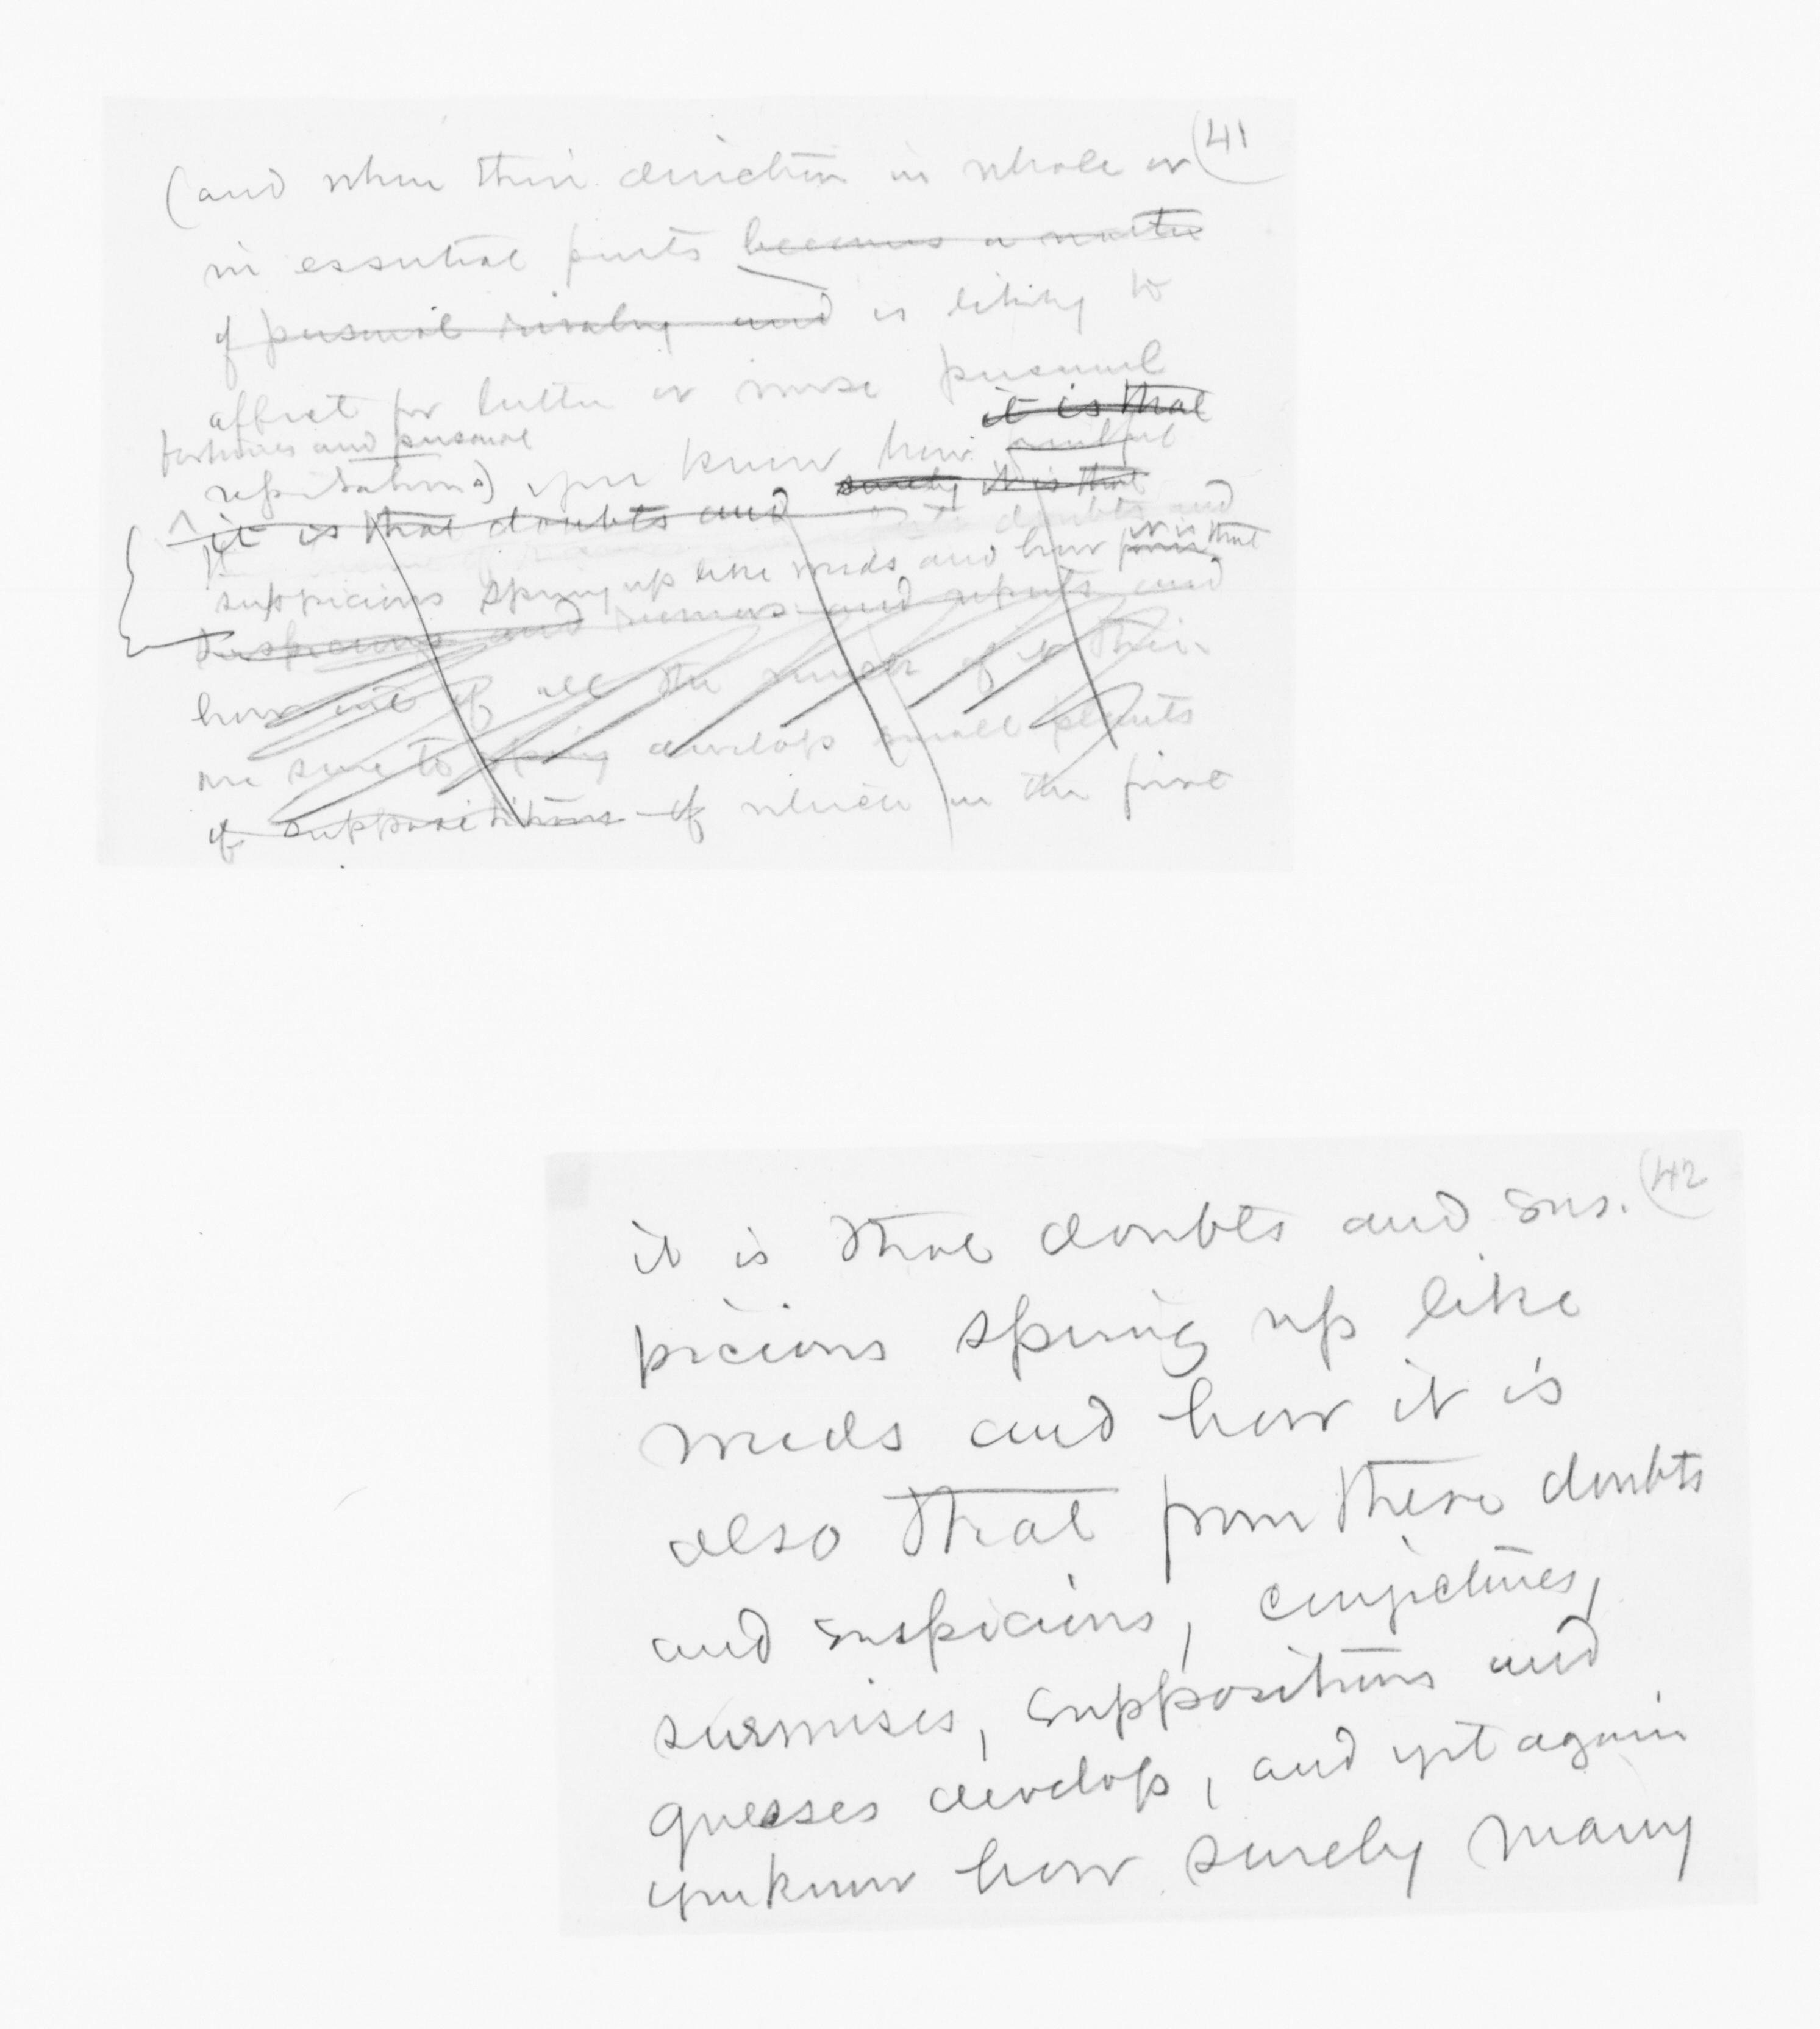 (41
(and when their direction in whole or
in essential parts becomes a matter
of personal rivalry and is likely to
affect for better or worse personal
fortunes and personal it is that
reputations) you know how
surely it is that
it is that doubts and
doubts and
suspicions spring up like weeds and how it is that
suspicions and rumors and reports and
how out of all the
are sure to spring develop small plants
of suppositions of which in the first
(42
it is that doubts and sus-
picions spring up like
weeds and how it is
also that from these doubts
and suspicions, conjectures,
surmises, suppositions and
guesses develop, and yet again
you know how surely many